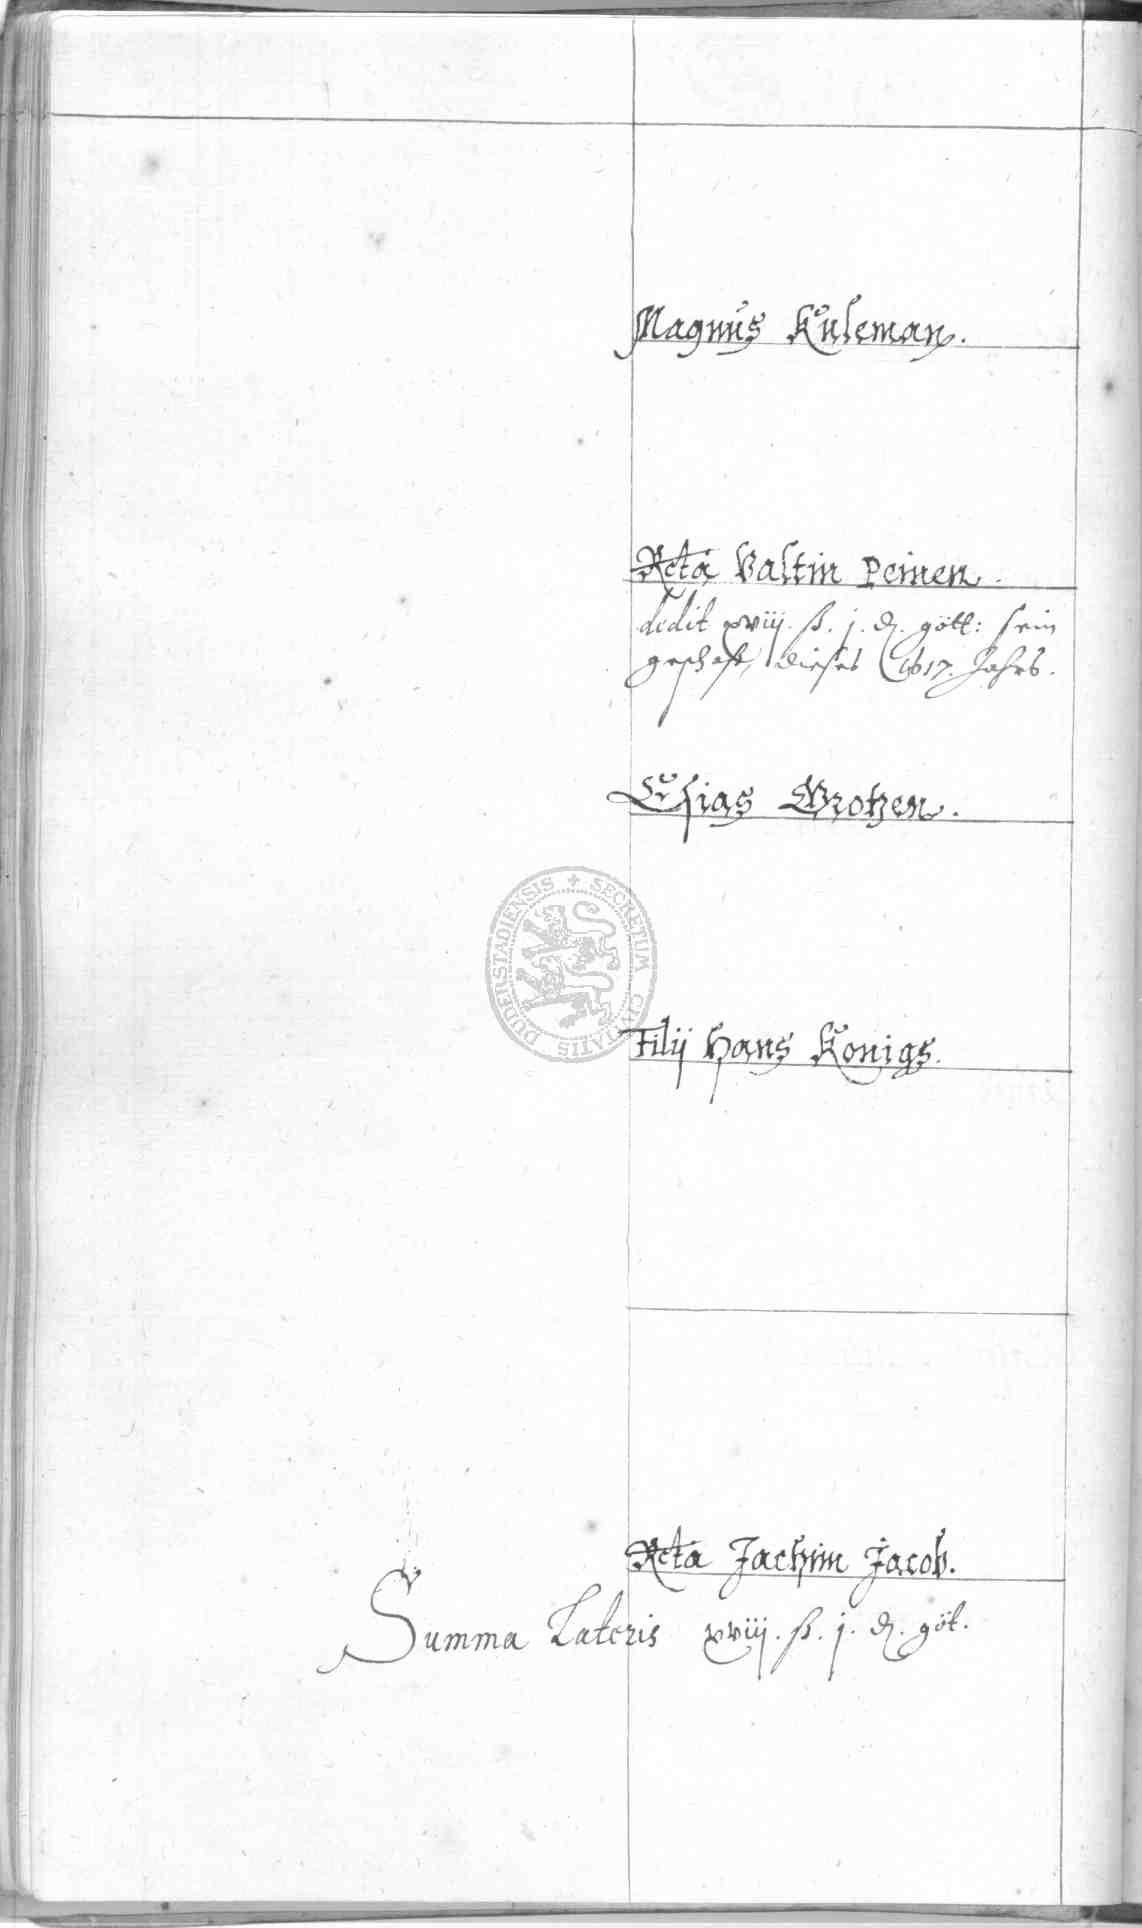 Magnus Kuleman.
Rcta Valtin Peinen.
dedit xviij. ß. j. d. gött: sein
geschoß, dieses 1617. Jahrs.
Esias Grotzen.
SECRETUM CIVITATIS DUDERSTADIENSIS
Filij Hans Konigs.
Rcta Jachim Jacob.
Summa Lateris xviij. ß. j. d. göt.